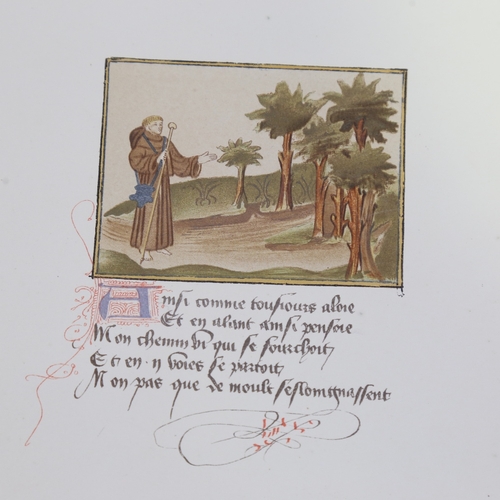 Ainsi comme tousiours aloie
Et en alant ainsi pensoie
Mon chemin vi qui se fourchoit
Et en .ii voies se partoit
Mon pas que de moult seslongnassent